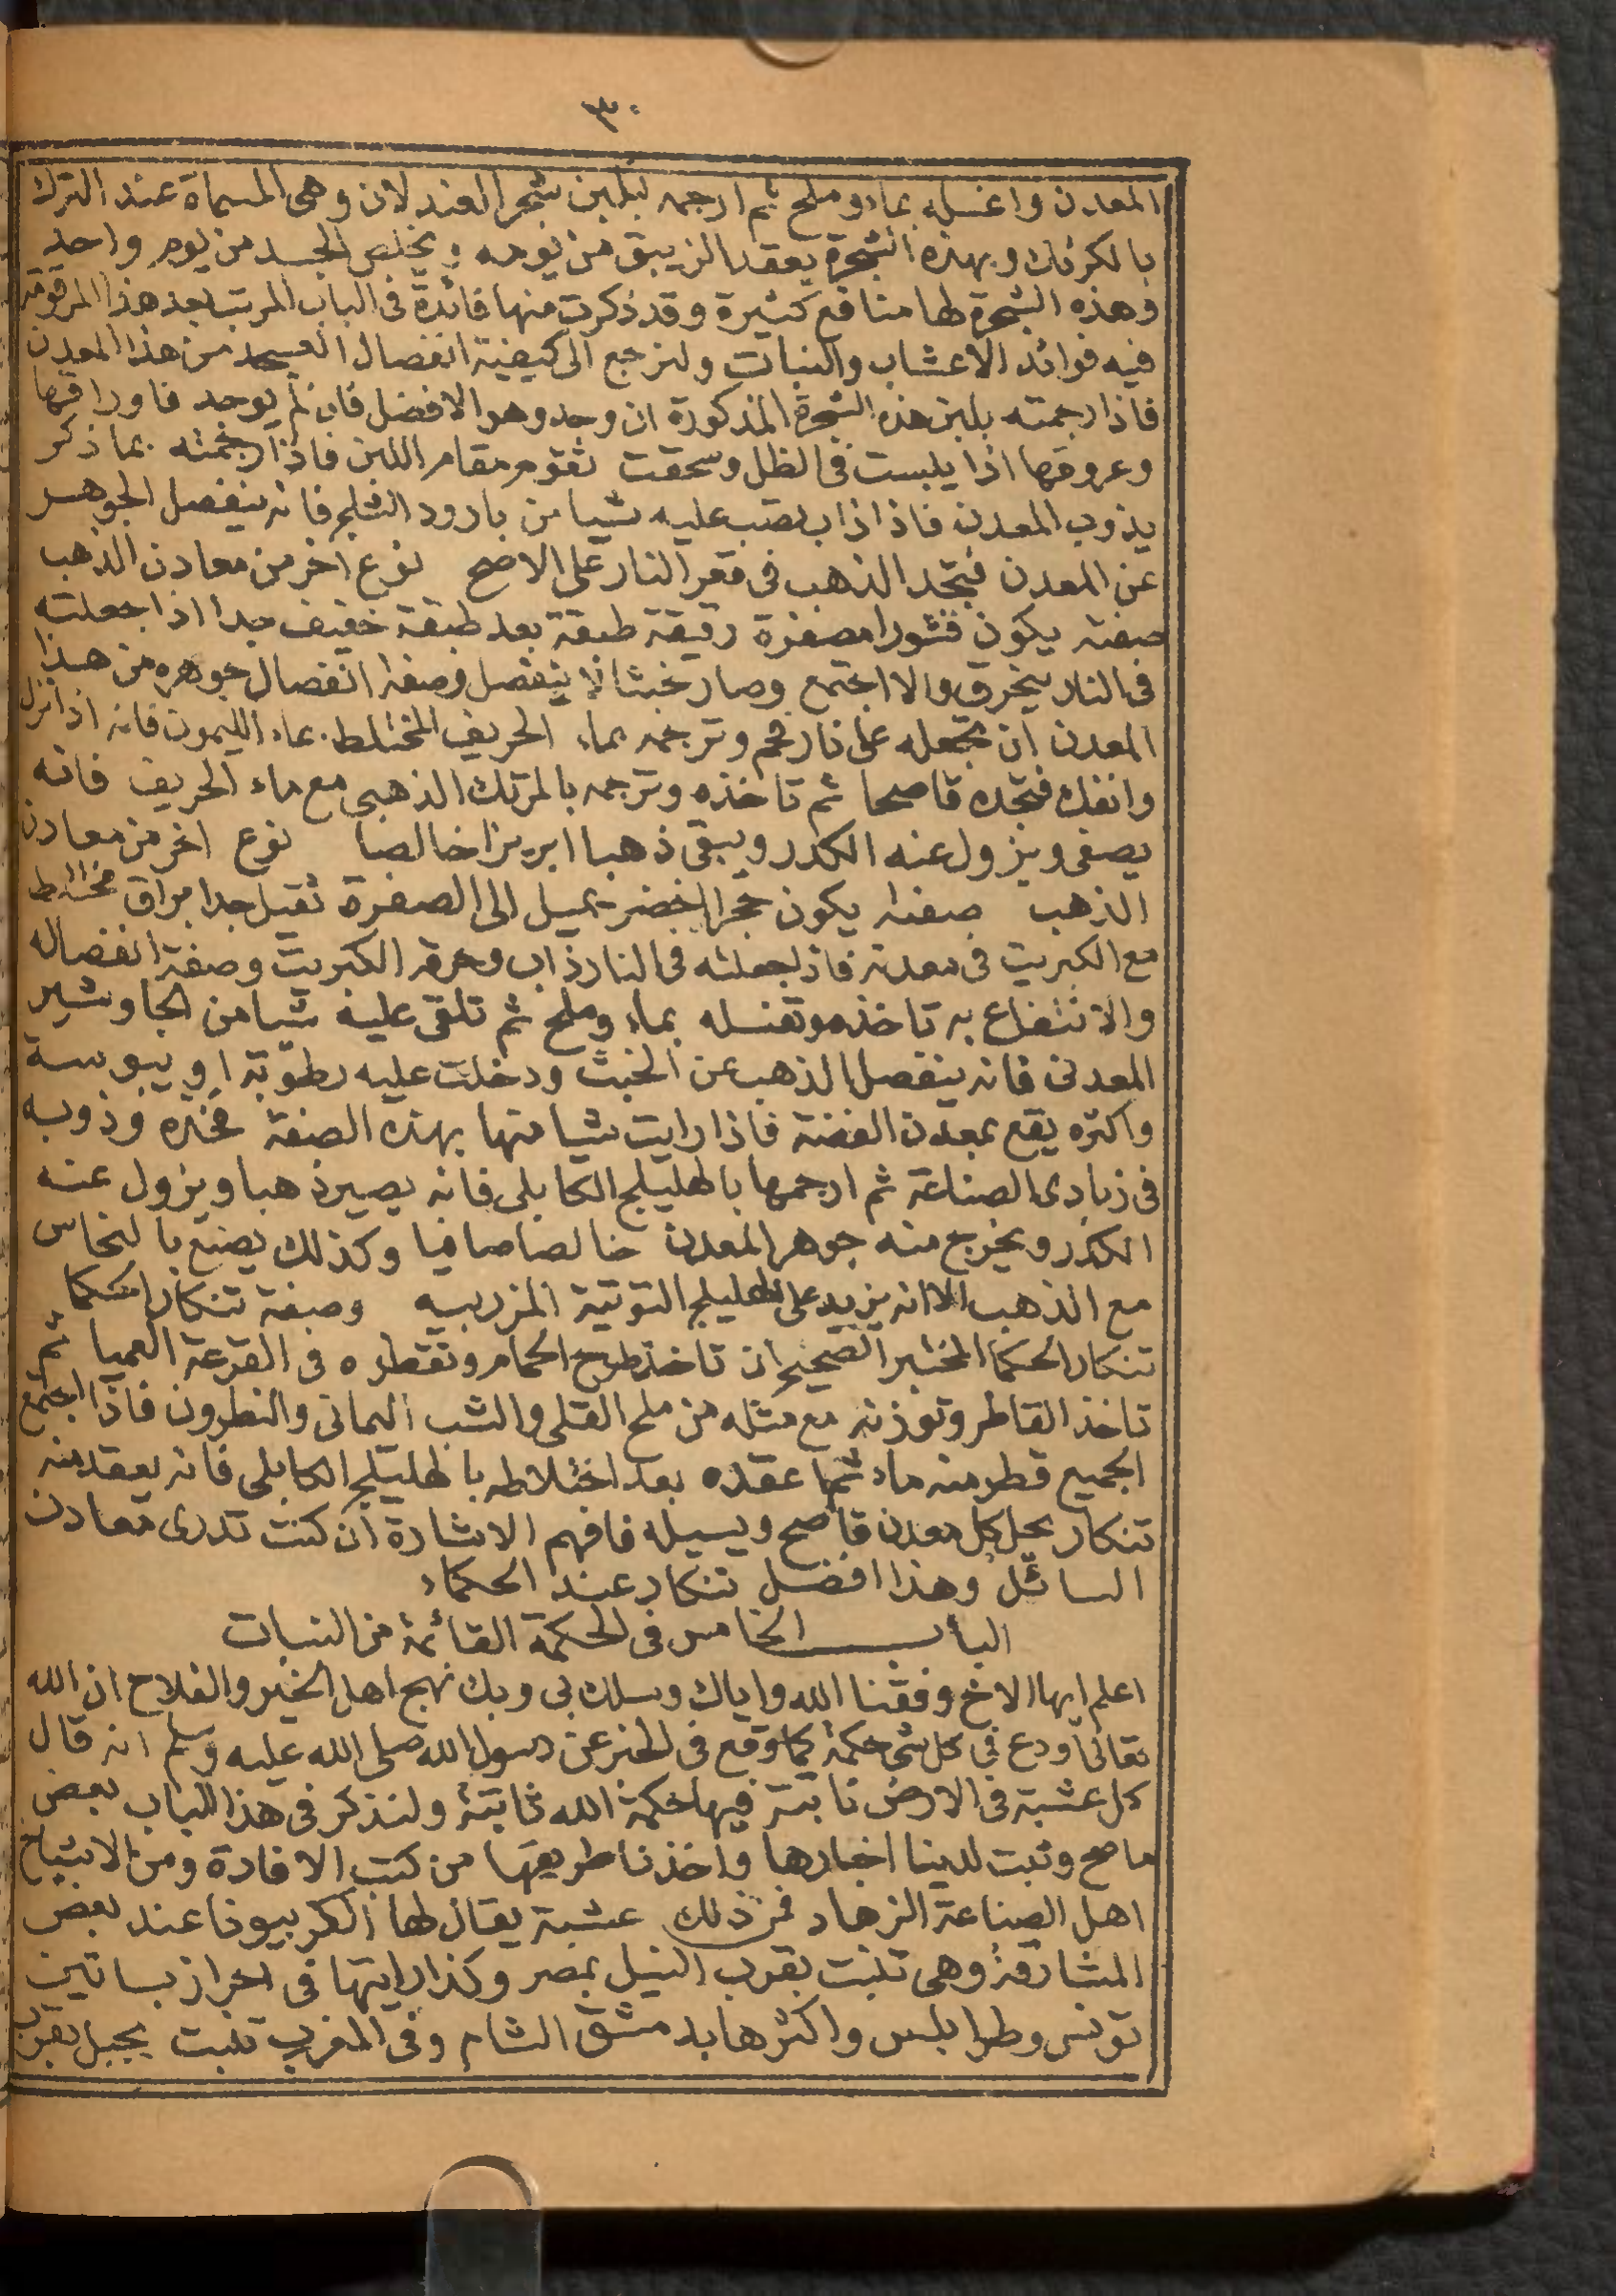 ٣٠
المعدن واغسله بماء وملح ثم ارجمه بلبن شجر الغندلان وهى المسماة عند الترك
بالكرنك وبهذه الشجرة يعقد الزيبق من يومه ويخلص الجسد من يوم واحد
وهذه الشجرة لها منافع كثيرة وقد ذكرت منها فائدة فى الباب المرتب بعد هذا المرقومة
فيه فوائد الاعشاب والنبات ولنرجع الى كيفية انفصال العسجد من هذا المعدن
فاذا رجمته بلبن هذه الشجرة المذكورة ان وجد وهو الافضل فان لم يوجد فاوراقها
وعروقها اذا يبست فى الظل وسحقت تقوم مقام اللبن فاذا رجمته بما ذكر
يذوب المعدن فاذا ذاب تصب عليه شيا من بارود الثلج فانه ينفصل الجوهر
عن المعدن فتجد الذهب فى قعر النار على الاصح نوع اخر من معادن الذهب
صفته يكون قشورا مصفرة رقيقة طبقة بعد طبقة خفيف جدا اذا جعلته
فى النار يتحرق والا اجتمع وصار خبثا لا ينفصل وصفة انفصال جوهره من هذا
المعدن ان تجعله على نار فحم وترجمه بماء الحريف المختلط بماء الليمون فانه اذا نزل
وانفك فتجده قاصحا ثم تاخذه وترجمه بالمرتك الذهبى مع ماء الحريف فانه
يصفى ويزول عنه الكدر ويبقى ذهبا ابريزا خالصا نوع اخر من معادن
الذهب صفته يكون حجرا اخضر يميل الى الصفرة ثقيل جدا براق مختلط
مع الكبريت فى معدنه فاذا جعلته فى النار ذاب وحرقه الكبريت وصفة انفصاله
والانتفاع به تاخذه وتغسله بماء وملح ثم تلقى عليه شيا من الجاوشير
المعدنى فانه ينفصل الذهب عن الخبث ودخلت عليه رطوبة او يبوسة
واكثره يقع بمعدن الفضة فاذا رايت شيا منها بهذه الصفة فخذه وذوبه
فى زبادى الصناعة ثم ارجمها بالهليلج الكابلى فانه يصير ذهبا ويزول عنه
الكدر ويخرج منه جوهر المعدن خالصا صافيا وكذلك يصنع بالنحاس
مع الذهب الا انه يزيد على الهليلج التوتية المزربيه وصفة تنكار الحكما
تنكار الحكما المختبر الصحيح ان تاخذ طرح الحمام وتقطره فى القرعة العميا ثم
تاخذ القاطر وتوزنه مع مثله من ملح القلى والشب اليمانى والنطرون فاذا اجتمع
الجميع قطر منه ماء ثم اعقده بعد اختلاطه بالهليلج الكابلى فانه يعقد منه
تنكار يحل كل معدن قاصح ويسيله فافهم الاشارة ان كنت تدرى معادن
السائل وهذا افضل تنكار عند الحكماء
الباب الخامس فى الحكمة القائمة من النبات
اعلم ايها الاخ وفقنا الله واياك وسلك بى وبك نهج اهل الخير والفلاح ان الله
تعالى اودع فى كل شى حكمة كما وقع فى الخبر عن رسول الله صلى الله عليه وسلم انه قال
كل عشبة فى الارض نابتة فيها حكمة الله ثابتة ولنذكر فى هذا الباب بعض
ما صح وثبت لدينا اخبارها واخذنا طريقها من كتب الافادة ومن الاشياخ
اهل الصناعة الزهاد فمن ذلك عشبة يقال لها الكربيونا عند بعض
المشارقة وهى تنبت بقرب النيل بمصر وكذا رايتها فى احراز بساتين
تونس وطرابلس واكثرها بدمشق الشام وفى المغرب تنبت بجبل بقرب